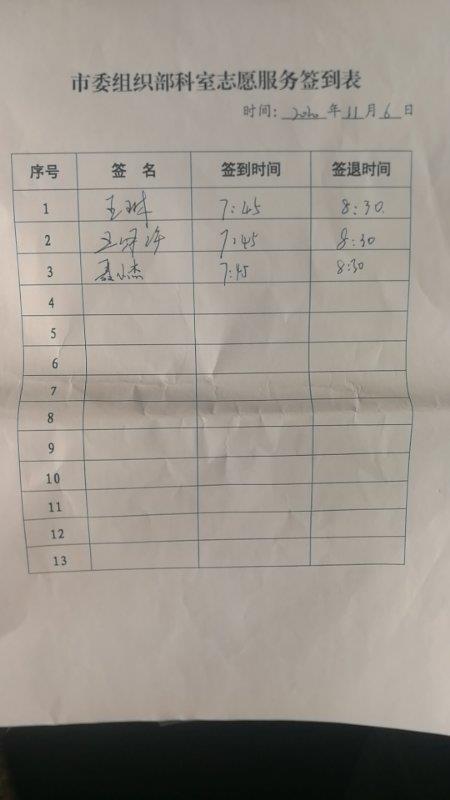 市委组织部科室志愿服务签到表
时间: 2020 年 11 月 6 日
序号 签 名 签到时间 签退时间
1 王琳 7:45 8:30
2 7:45 8:30
3 7:45 8:30
4
5
6
7
8
9
10
11
12
13